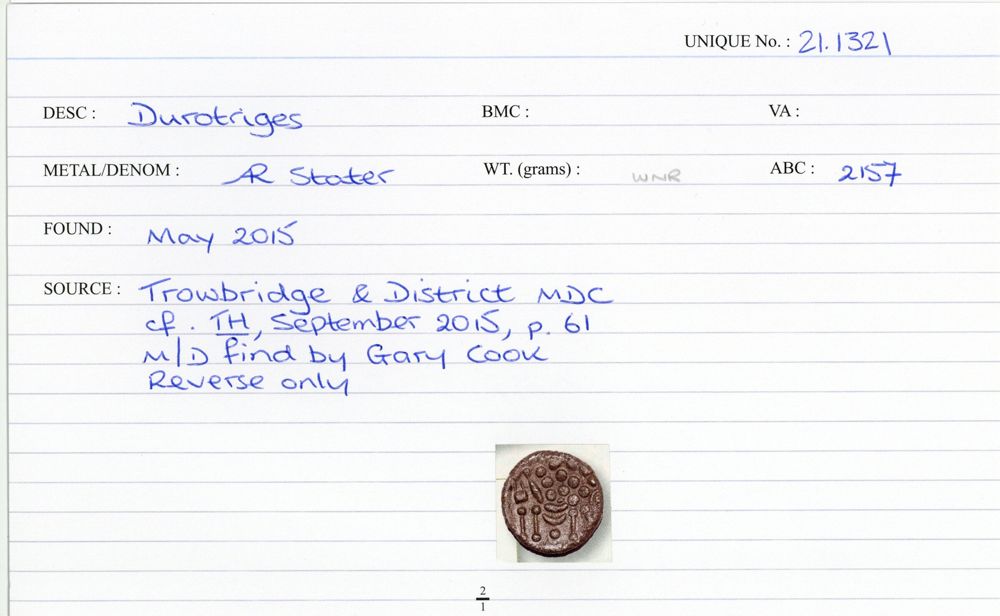 UNIQUE No. : 21.1321
DESC : Durotriges BMC : VA :
METAL/DENOM : AR Stater WT. (grams) : WNR ABC : 2157
FOUND : May 2015
SOURCE : Trowbridge & District MDC
cf. TH, September 2015, p. 61
M/D find by Gary Cook
Reverse only
2
1